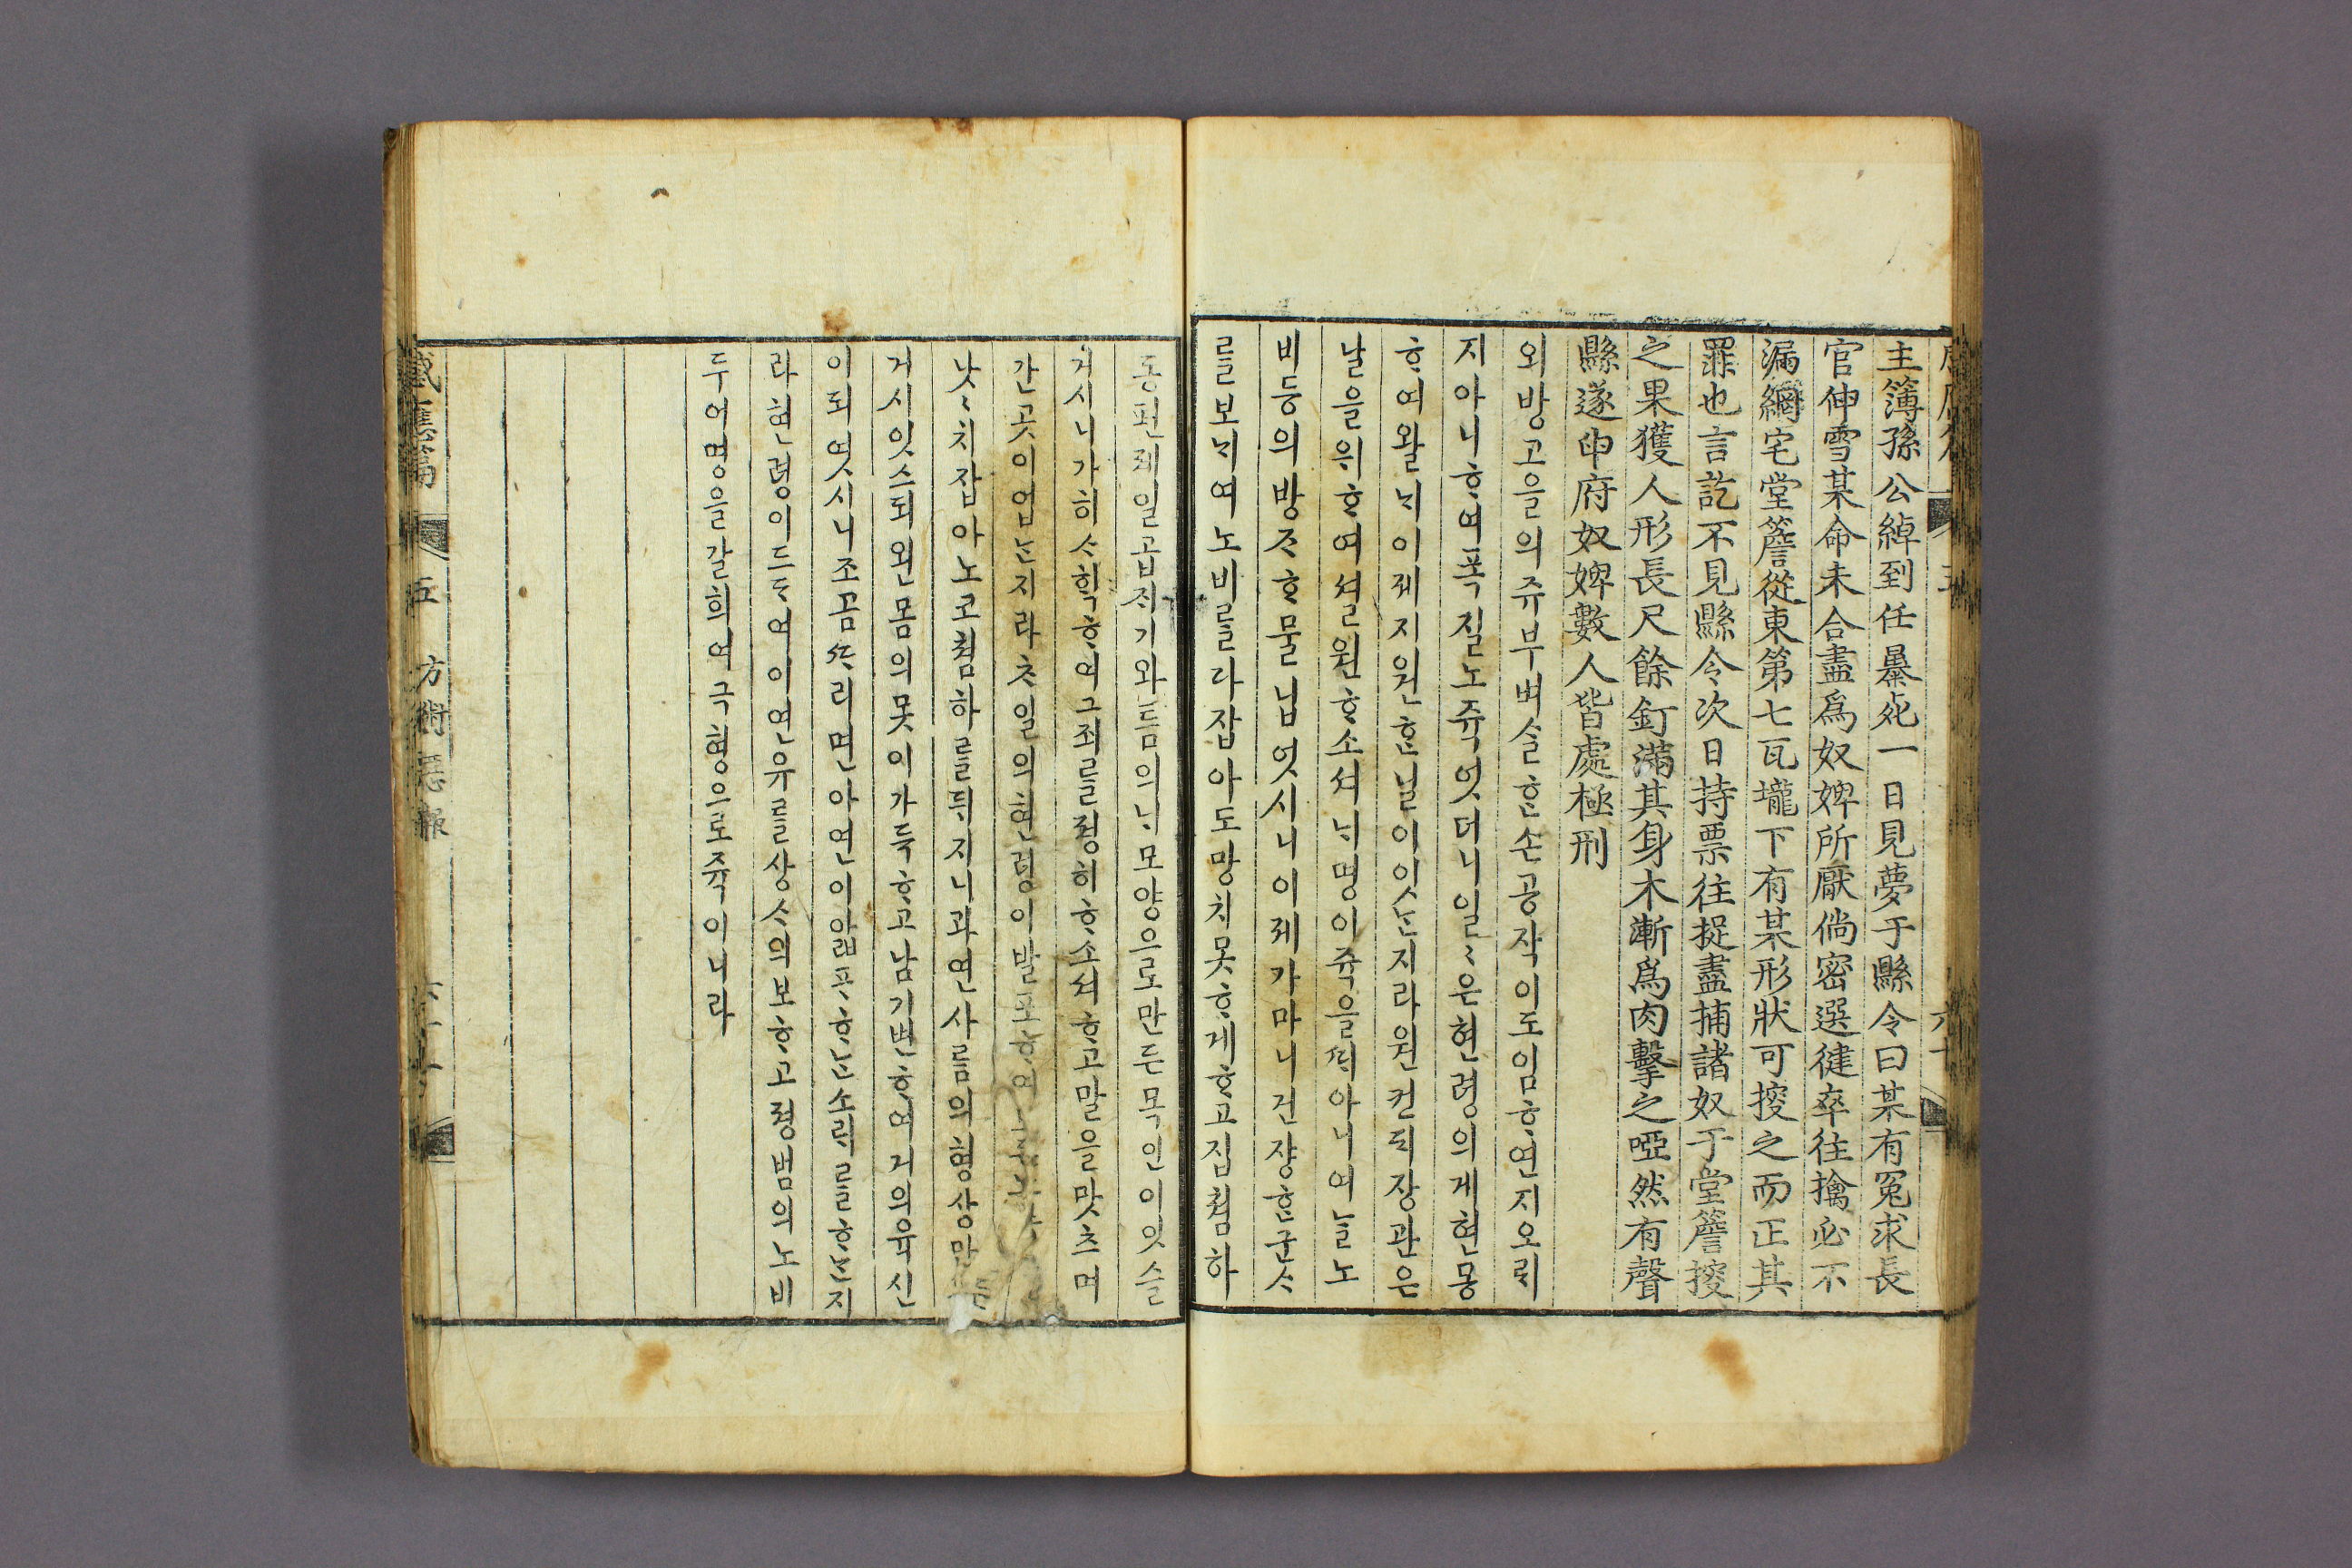 主簿孫公綽到任暴死一日見夢于縣令曰某有冤求長
官伸雪某命未合盡爲奴婢所厭倘密選健卒往擒必不
漏網宅堂簷從東第七瓦壠下有某形狀可搜之而正其
罪也言訖不見縣令次日持票往捉盡捕諸奴于堂簷搜
之果獲人形長尺餘釘滿其身木漸爲肉擊之啞然有聲
縣遂申府奴婢數人皆處極刑
외방고을의쥬부벼슬ᄒᆞᆫ손공작이도임ᄒᆞ연지오ᄅᆡ
지아니ᄒᆞ여폭질노쥭엇더니일〻은현령의게현몽
ᄒᆞ여왈ᄂᆡ이제지원ᄒᆞᆫ닐이잇ᄂᆞᆫ지라원컨ᄃᆡ장관은
날을위ᄒᆞ여셜원ᄒᆞ소셔ᄂᆡ명이쥭을ᄯᅢ아니여늘노
비등의방ᄌᆞᄒᆞ물닙엇시니이제가마니건쟝ᄒᆞᆫ군ᄉᆞ
를보ᄂᆡ여노비를라잡아도망치못ᄒᆞ게ᄒᆞ고집쳠하
동편제일곱ᄌᆡ기와듬의ᄂᆡ모양으로만든목인이잇슬
거시니가히ᄉᆞ획ᄒᆞ여그죄를졍히ᄒᆞ소셔ᄒᆞ고말을맛츠며
간곳이업ᄂᆞᆫ지라ᄎᆞ일의현령이말
낫〻치잡아노코쳠하를뒤지니과연사ᄅᆞᆷ의형상만든
거시잇스되왼몸의못이가득ᄒᆞ고남기변ᄒᆞ여거의육신
이되엿시니조곰ᄯᆞ리면아연이압프ᄒᆞᄂᆞᆫ소ᄅᆡ를ᄒᆞᄂᆞᆫ지
라현령이드ᄃᆞ여이연유를상ᄉᆞ의보ᄒᆞ고졍범의노비
두어명을갈희여극형으로쥭이니라
感應篇 五 方術惡報